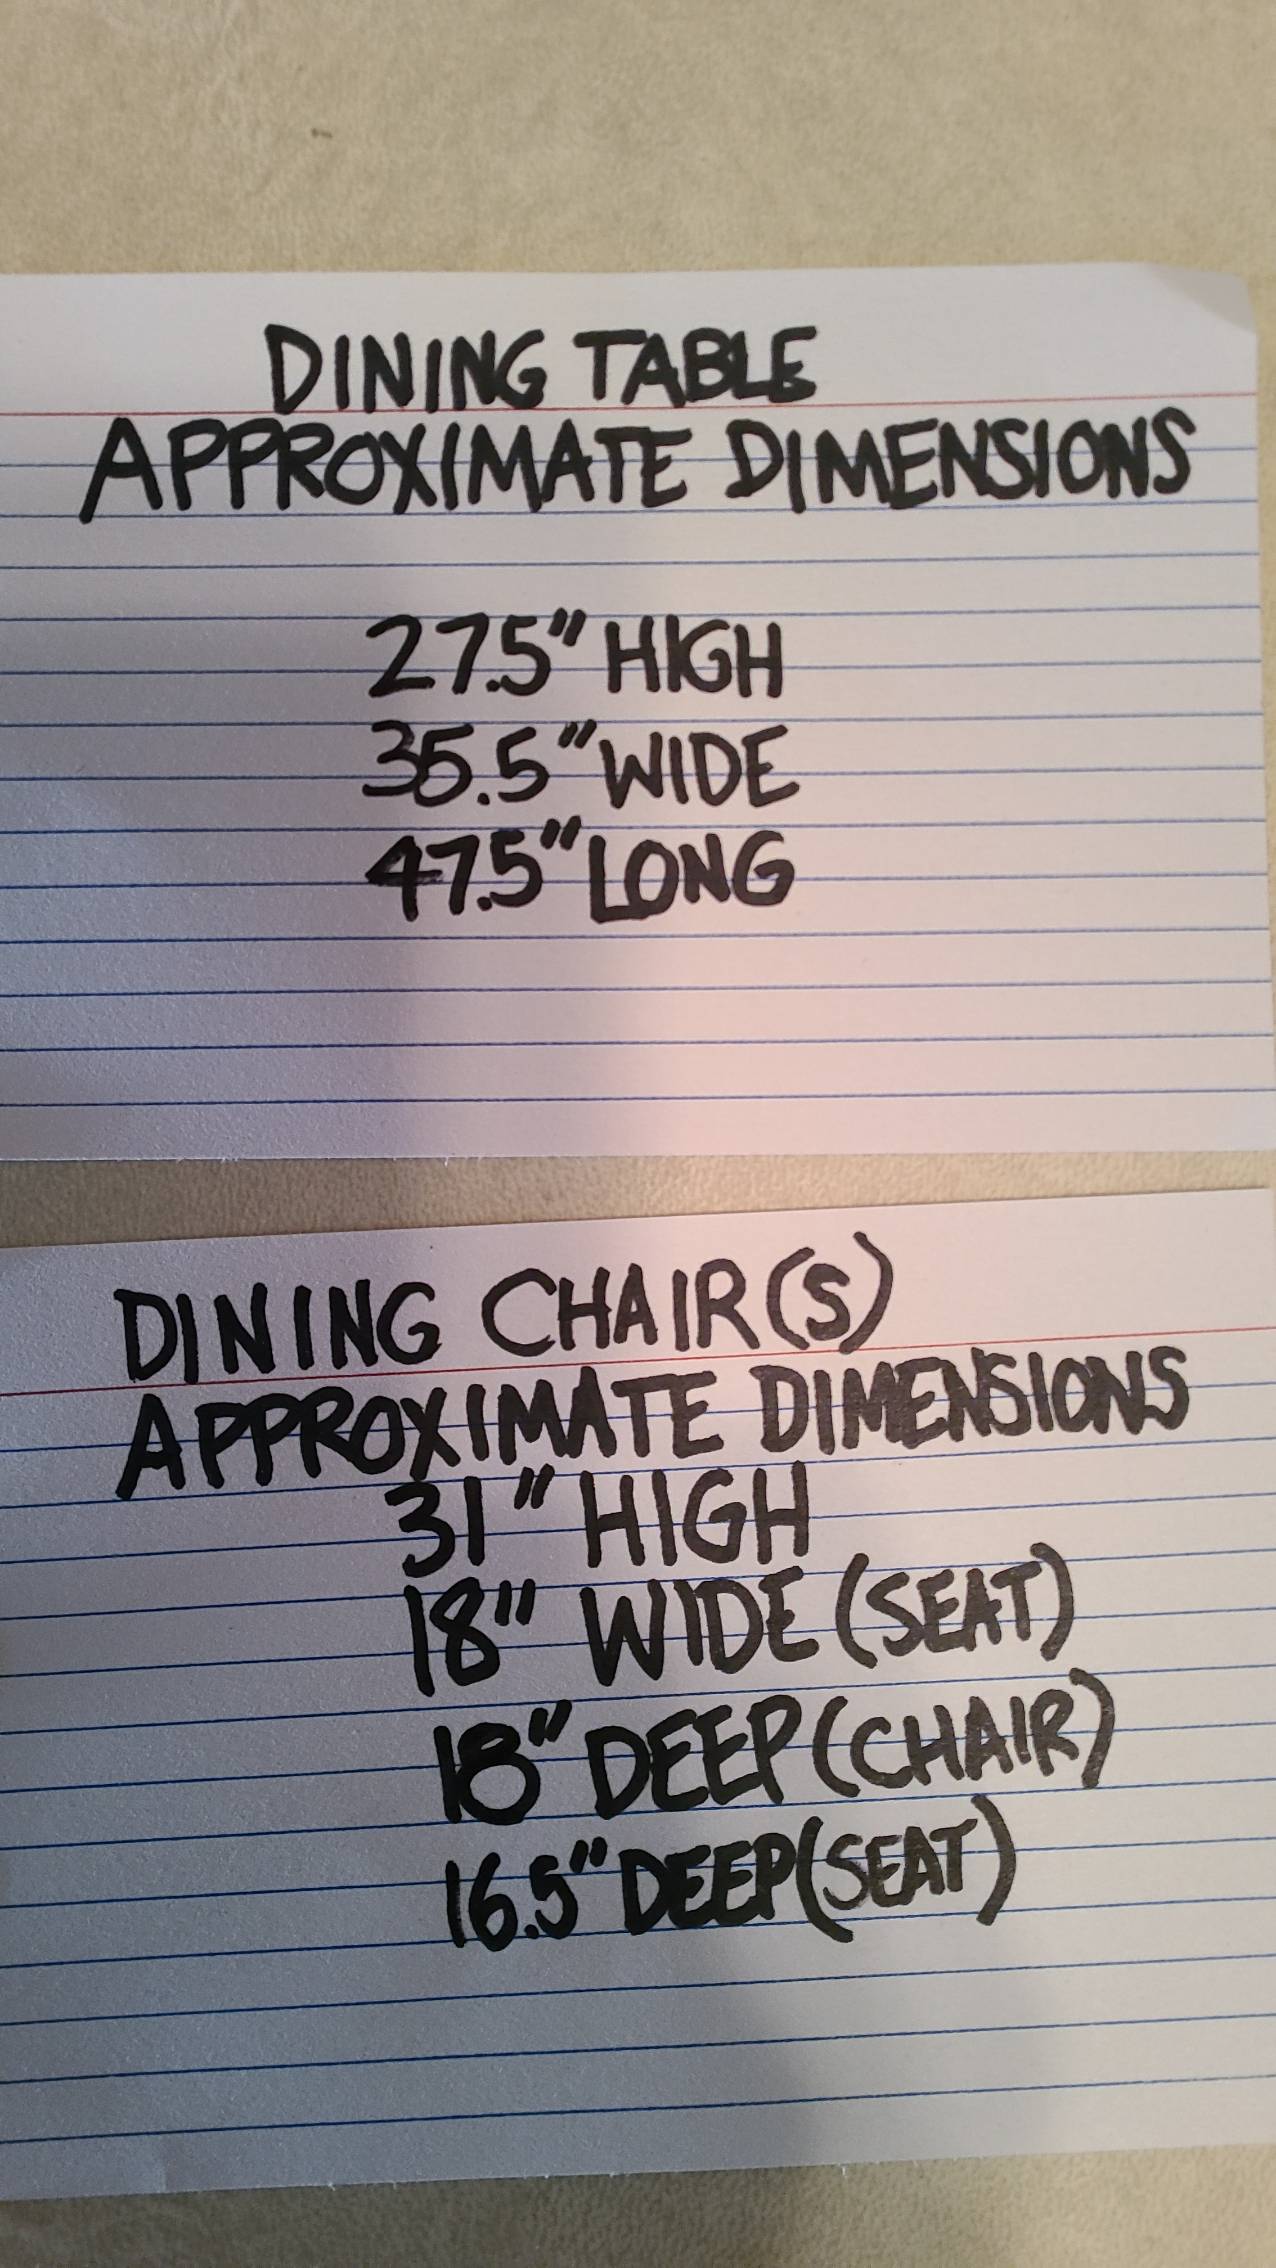 DINING TABLE
APPROXIMATE DIMENSIONS
27.5" HIGH
35.5" WIDE
47.5" LONG
DINING CHAIR(S)
APPROXIMATE DIMENSIONS
31" HIGH
18" WIDE (SEAT)
18" DEEP (CHAIR)
16.5" DEEP (SEAT)